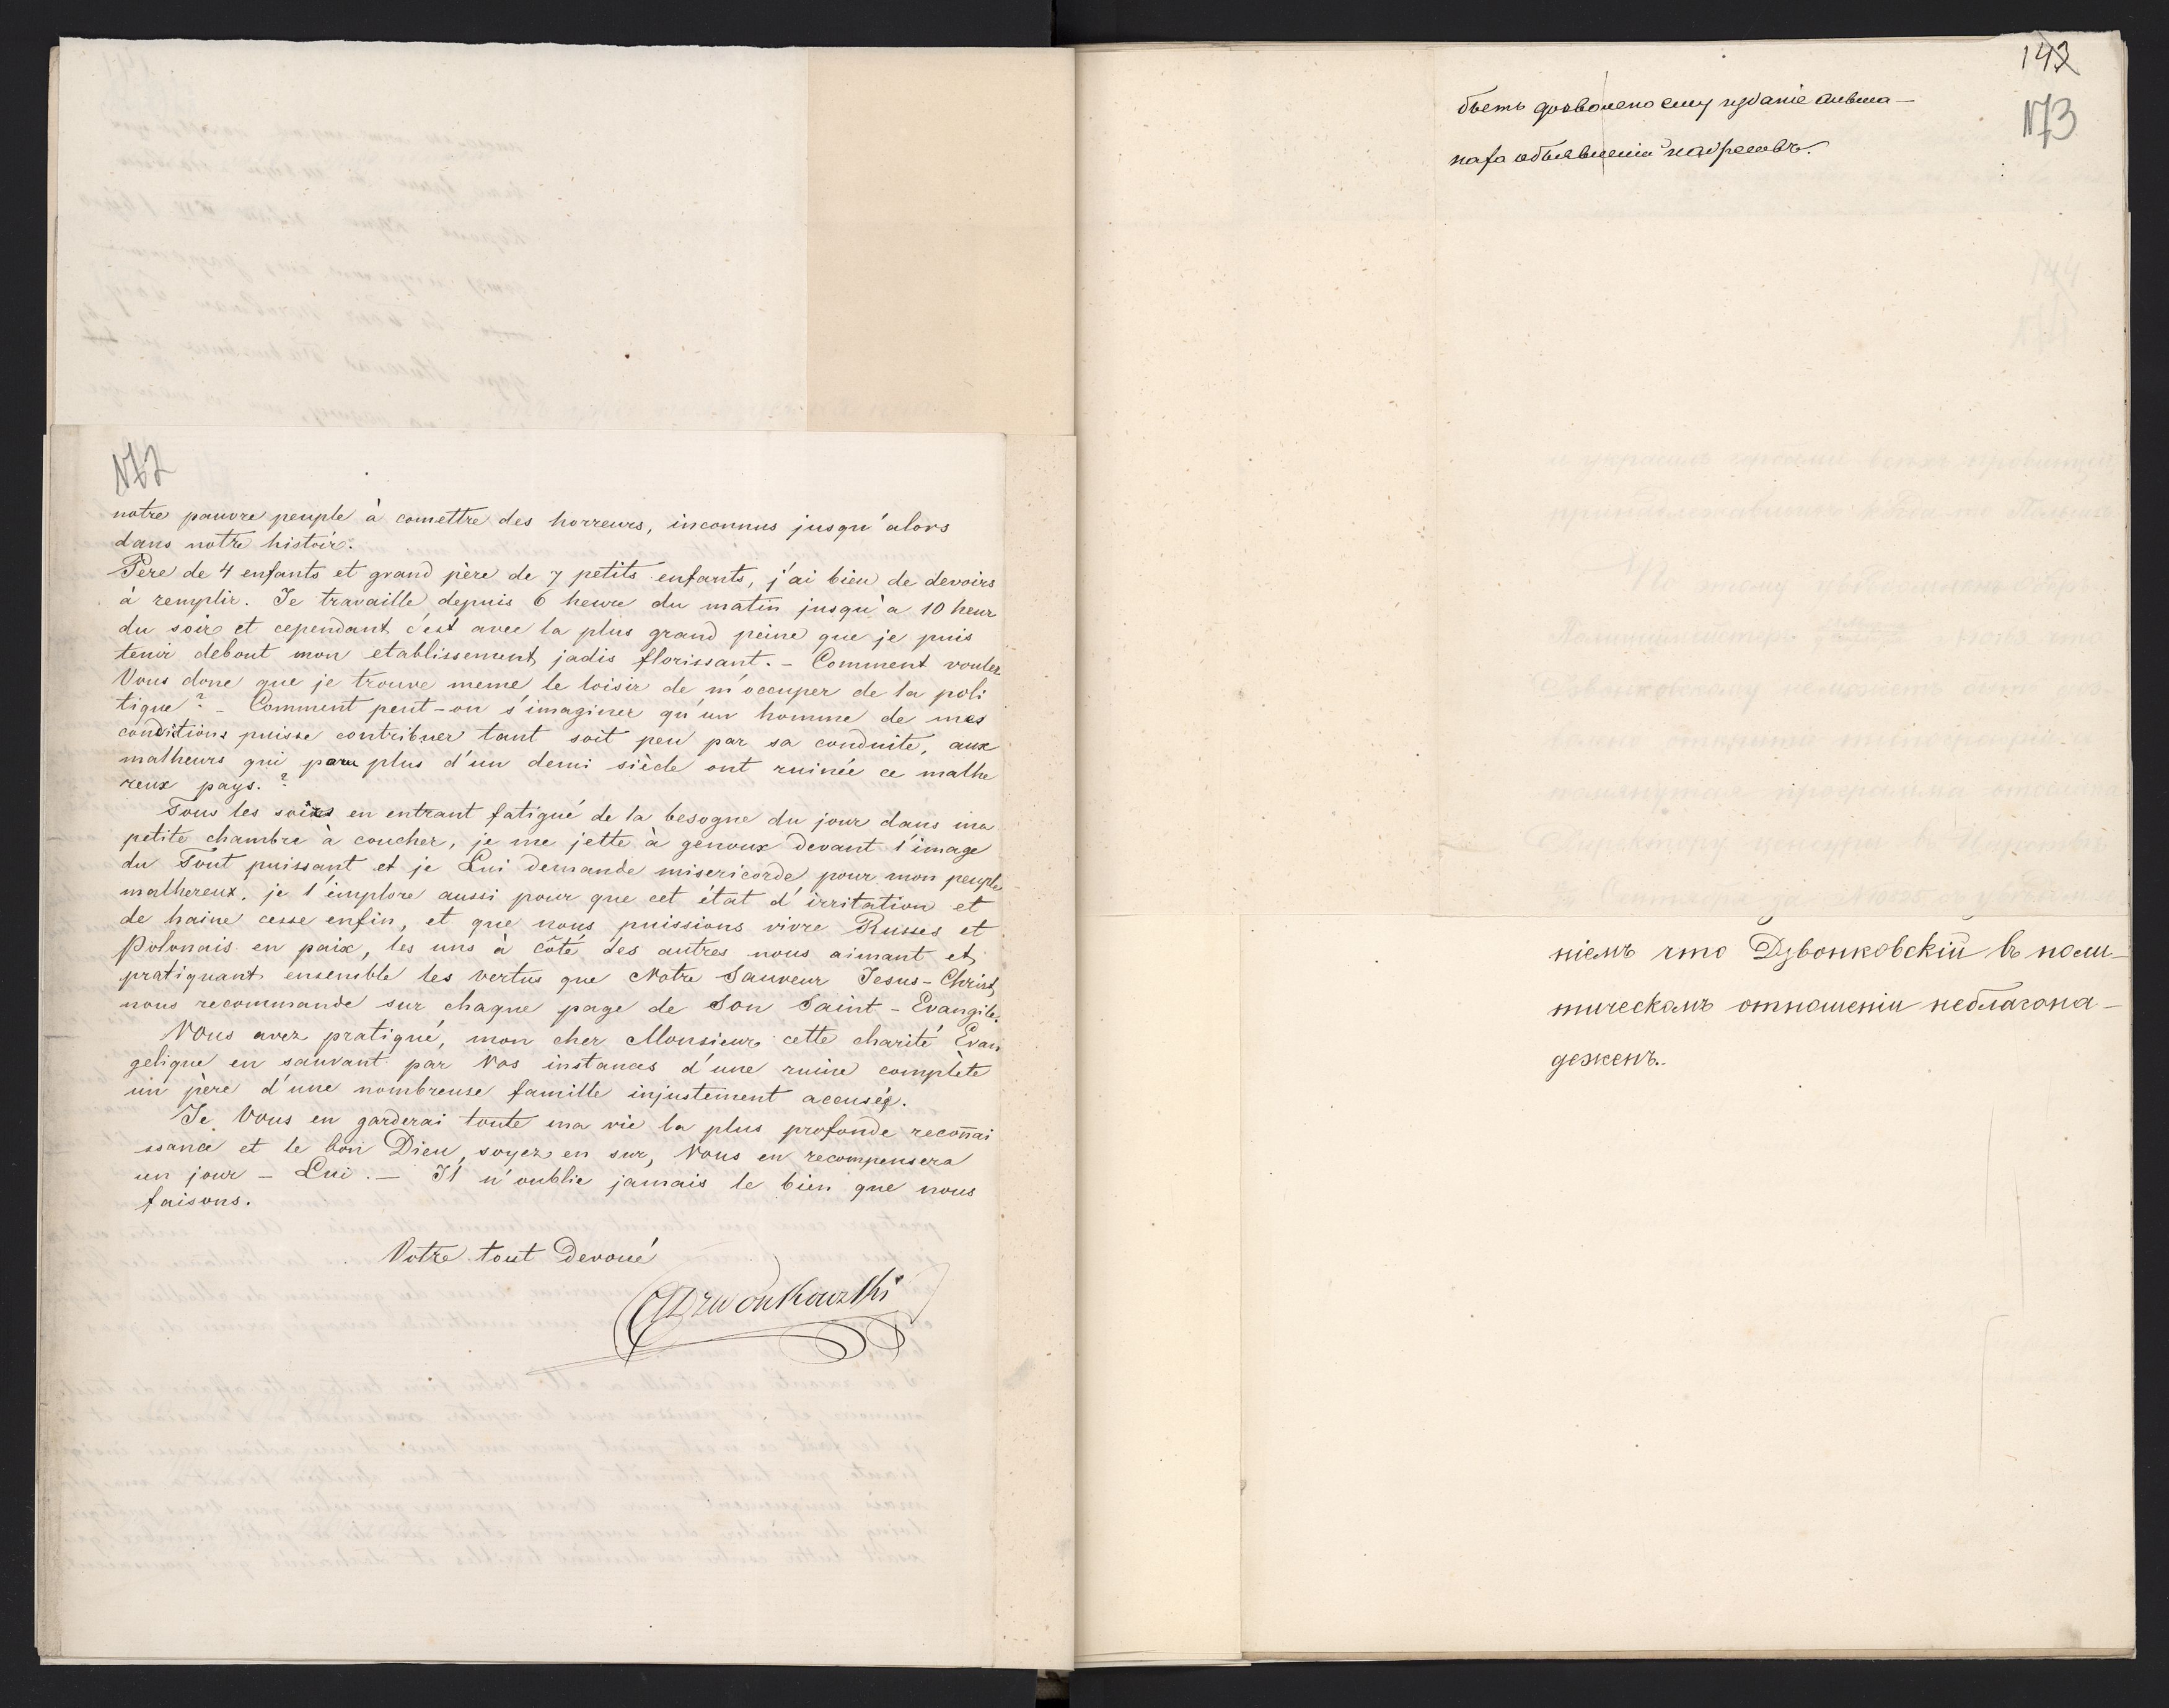 172
notre pauvre peuple à comettre des horreurs, inconnus jusqu'alors
dans notre histoire.
Père de 4 enfants et grand père de 7 petits enfants, j'ai bien de devoirs
à remplir. Je travaille depuis 6 heure du matin jusqu'a 10 heur
du soir et cependant c'est avec la plus grand peine que je puis
tenir debout mon etablissement jadis florissant. - Comment voulez
Vous donc que je trouve meme le loisir de m'occuper de la poli
tique? - Comment peut-on s'imaginer qu'un homme de mes
conditions puisse contribuer tant soit peu par sa conduite, aux
malheurs qui plus d'un demi siècle ont ruinée ce malhe
reux pays.?
Tous les soirs en entrant fatigué de la besogne du jour dans ma
petite chambre à coucher, je me jette à genoux devant l'image
du Tout puissant et je Lui demande misericorde pour mon peuple
malhereux. je l'implore aussi pour que cet état d'irritation et
de haine cesse enfin, et que nous puissions vivre Russes et
Polonais en paix, les uns à côté des autres nous aimant et
pratiquant ensemble les vertus que Notre Sauveur Jesus-Christ
nous recommande sur chaque page de Son Saint-Evangile.
Vous avez pratiqué, mon cher Monsieur cette charité Evan
gelique en sauvant par Vos instances d'une ruine complète
un père d'une nombreuse famille injustement accusé.
Je Vous en garderai toute ma vie la plus profonde reconnai
ssance et le bon Dieu, soyez en sur, Vous en recompensera
un jour - Lui. - Il n'oublie jamais le bien que nous
faisons.
Votre tout Devoué
Dzwonkowski
143
173
дозволено ему изданіе
объявленія
ніемъ что Дзвонковскій въ поли-
тическомъ отношеніи неблагона-
деженъ.